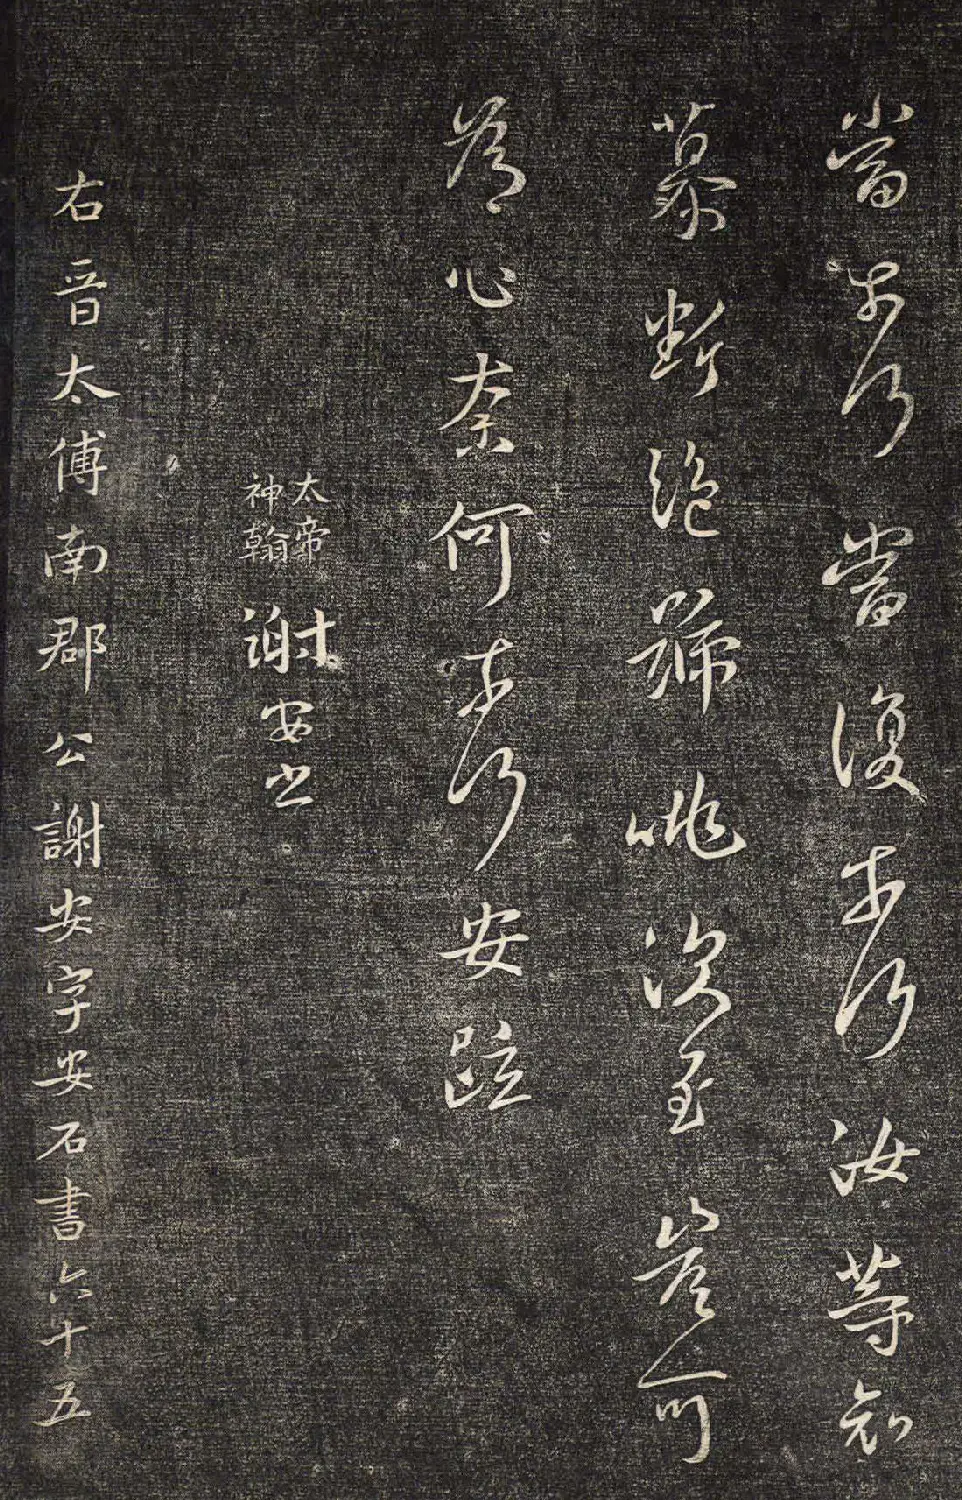 當奈何當復奈何汝等哀
慕斷絕號咷深至豈可
為心奈何奈何安疏
太帝
神翰
謝安書
右晉太傅南郡公謝安字安石書六十五